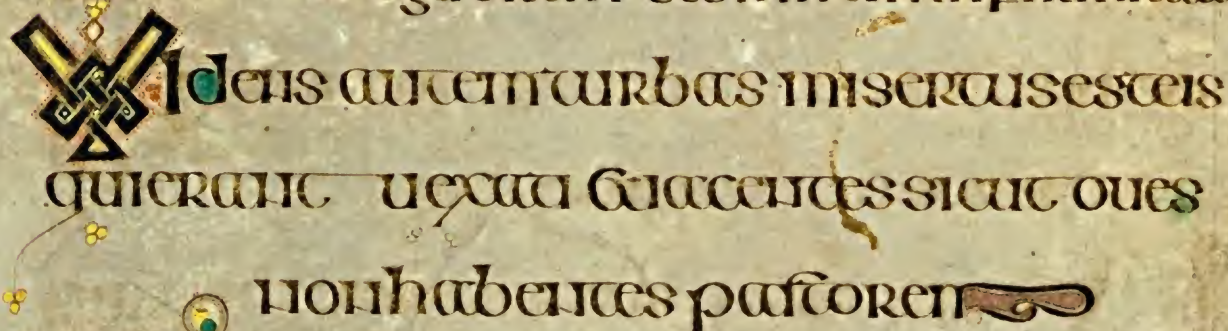 Videns autem turbas misertus est eis
qui erant uexati & iacentes sicut oues
non habentes pastorem